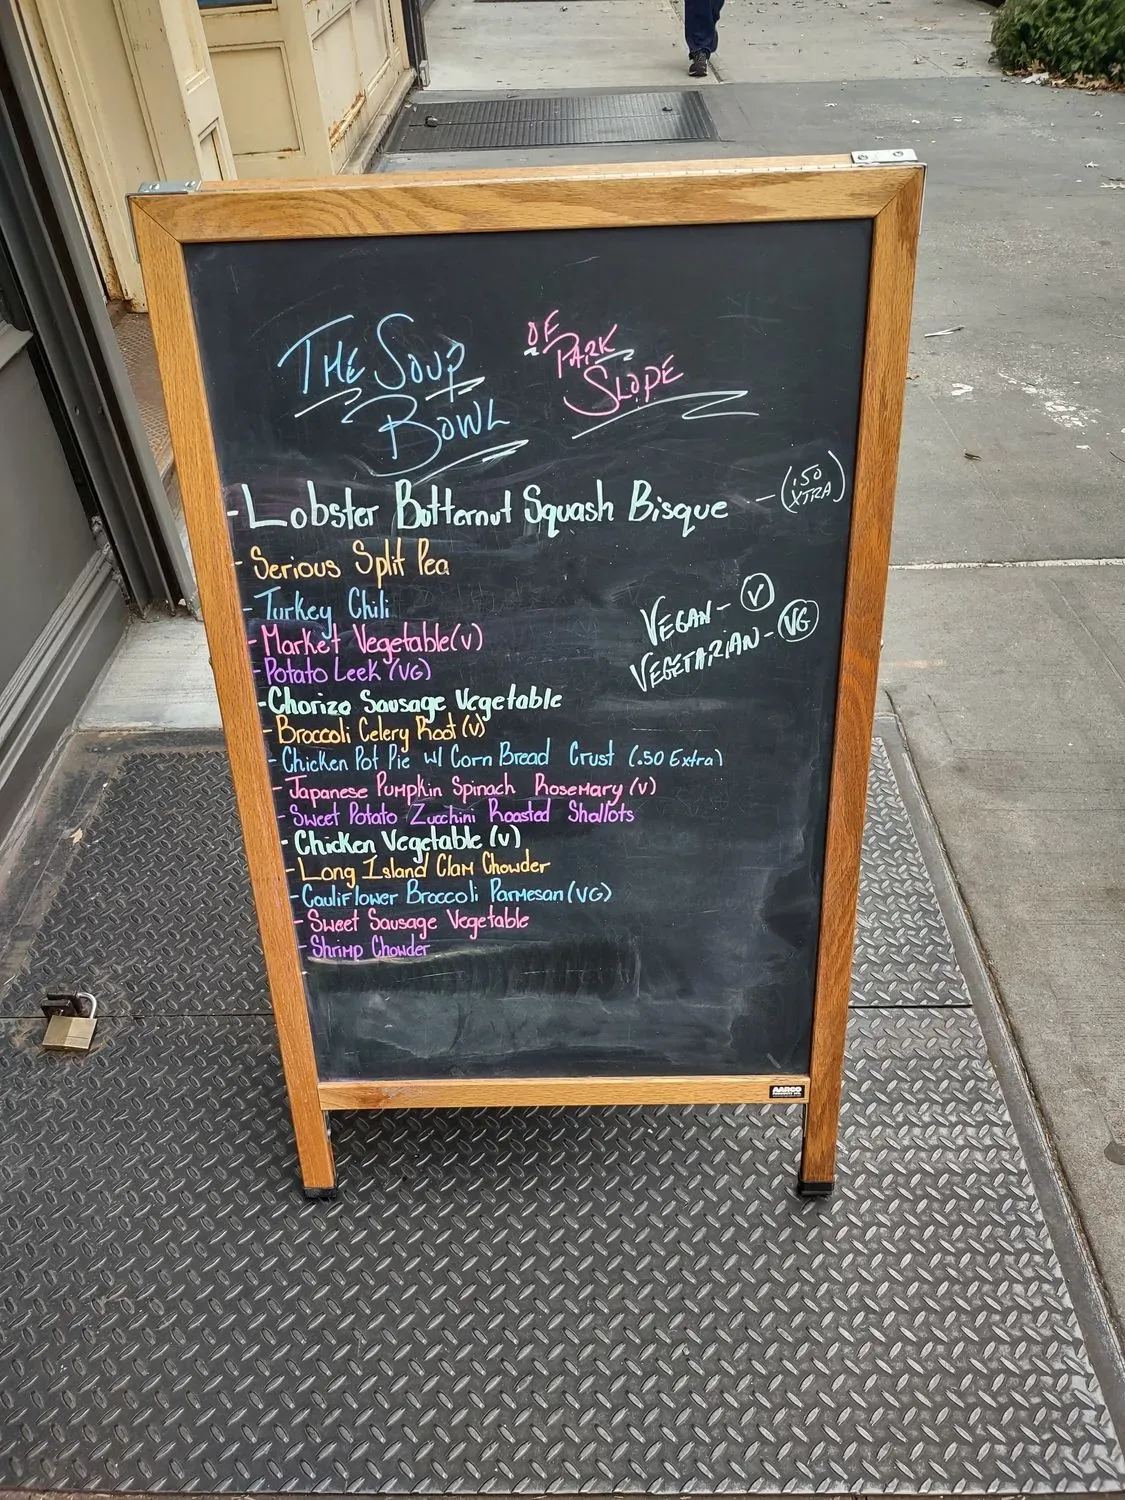 THE SOUP
BOWL
OF
PARK
SLOPE
- Lobster Butternut Squash Bisque - (.50 XTRA)
- Serious Split Pea
- Turkey Chili
- Market Vegetable (V)
- Potato Leek (VG)
- Chorizo Sausage Vegetable
- Broccoli Celery Root (V)
- Chicken Pot Pie w/ Corn Bread Crust (.50 Extra)
- Japanese Pumpkin Spinach Rosemary (V)
- Sweet Potato Zucchini Roasted Shallots
- Chicken Vegetable (V)
- Long Island Clam Chowder
- Cauliflower Broccoli Parmesan (VG)
- Sweet Sausage Vegetable
- Shrimp Chowder
VEGAN - V
VEGETARIAN - VG
AARCO